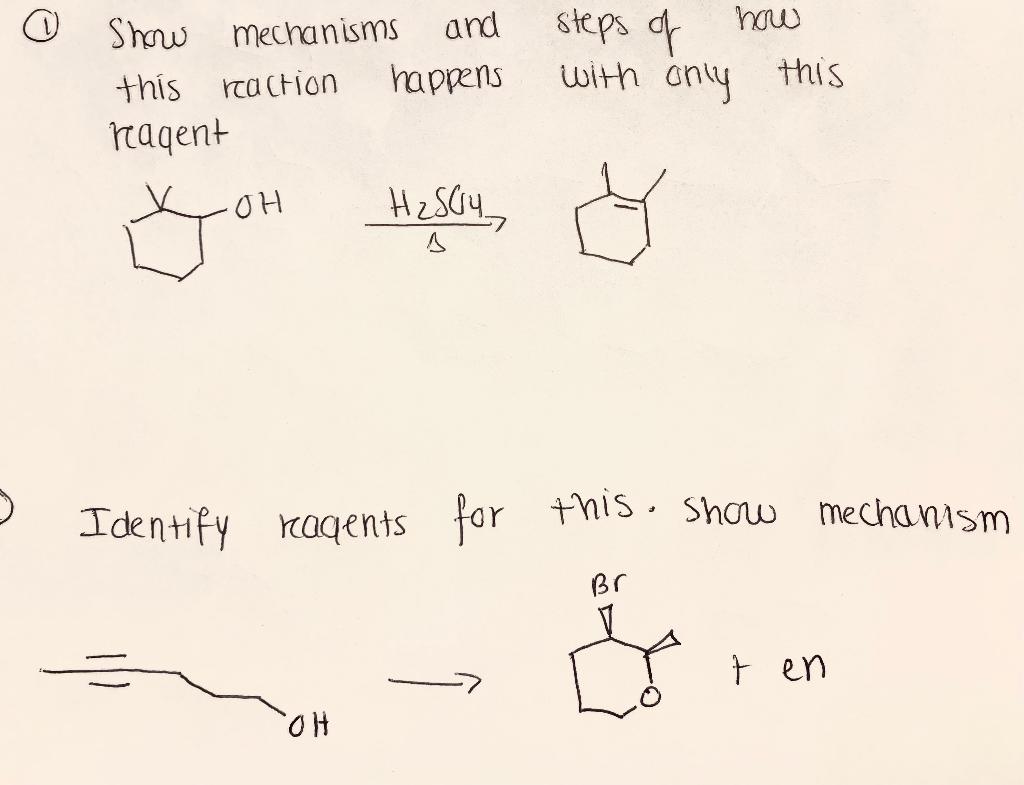 ① Show mechanisms and steps of how
this reaction happens with only this
reagent
OH
H2SO4
Δ
Identify reagents for this. show mechanism
Br
O
+ en
OH